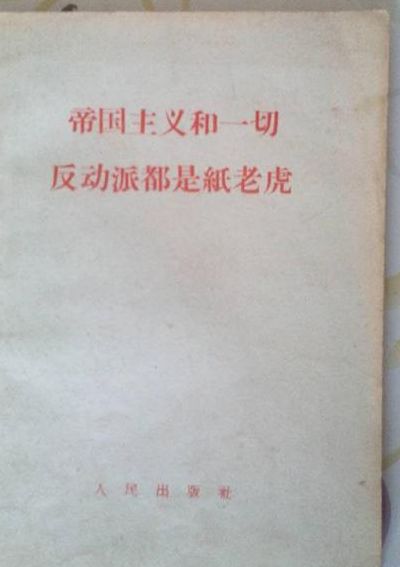 帝国主义和一切
反动派都是紙老虎
人民出版社